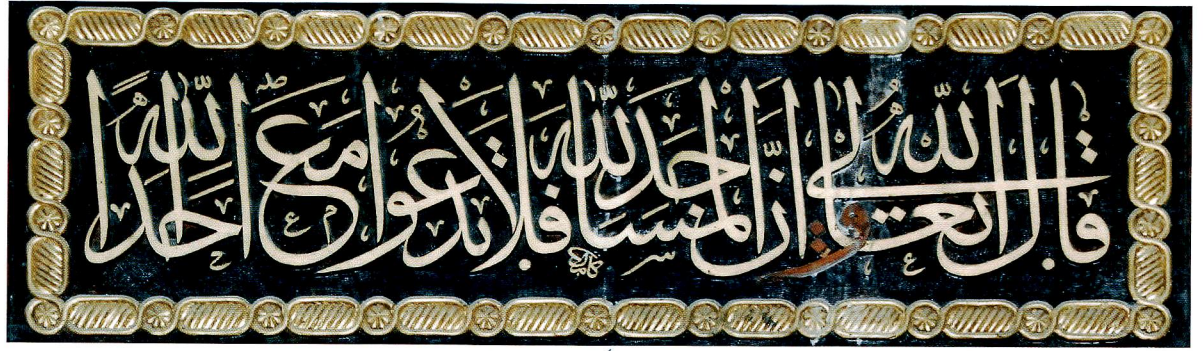 قال الله تعالى وانّ المساجد لله فلا تدعوا مع الله احدًا